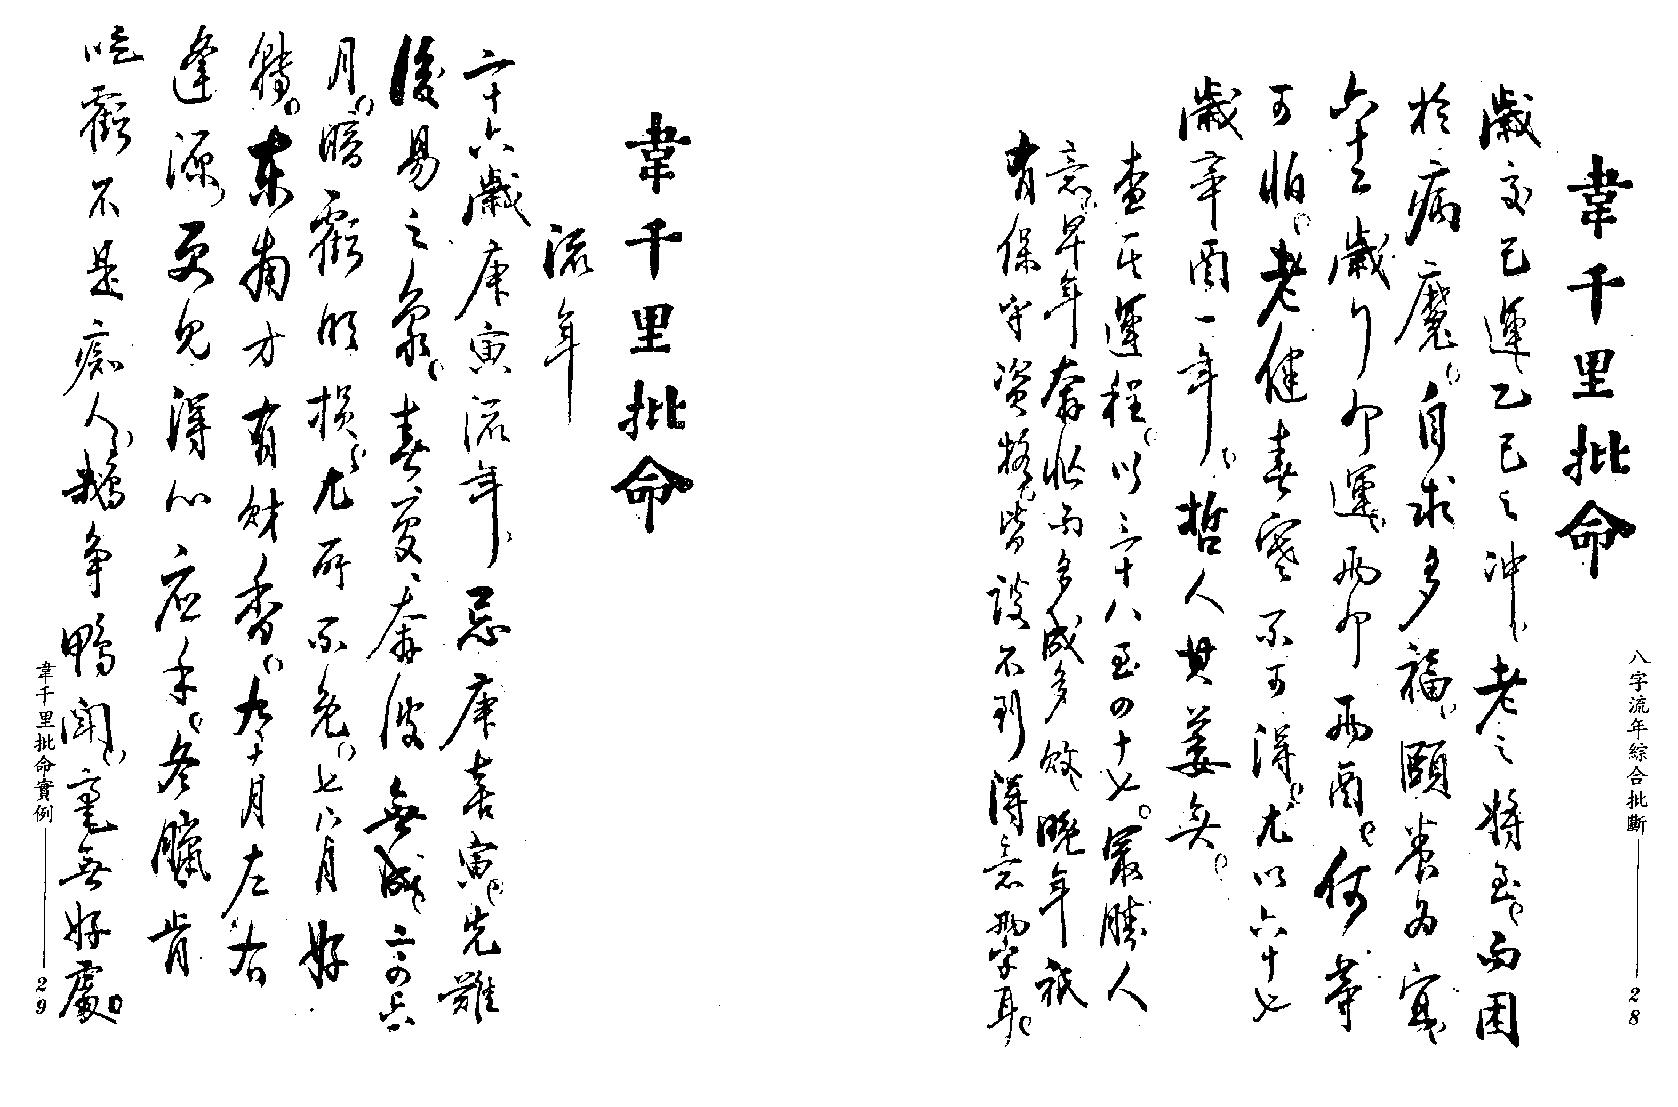 八字流年綜合批斷 28
韋千里批命
歲交己運乙巳之冲老之將至而困
於病魔自求多福頤養為宜
六十三歲行卯運兩卯兩酉何等
可怕老健春寒不可得尤以六十七
歲辛酉一年哲人其萎矣
查其運程以三十八至四十七最勝人
意早年奔忙而多成多敗晚年祇
有保守資格皆談不到得意兩字耳
韋千里批命
流年
二十六歲庚寅流年忌庚喜寅先難
後易之象春夏奔波無成二四六
月暗虧明損尤所不免七八月好
轉東南方有財香九十月左右
逢源更見得心應手冬臘肯
吃虧不是癡人鵝爭鴨鬧毫無好處
韋千里批命實例 29